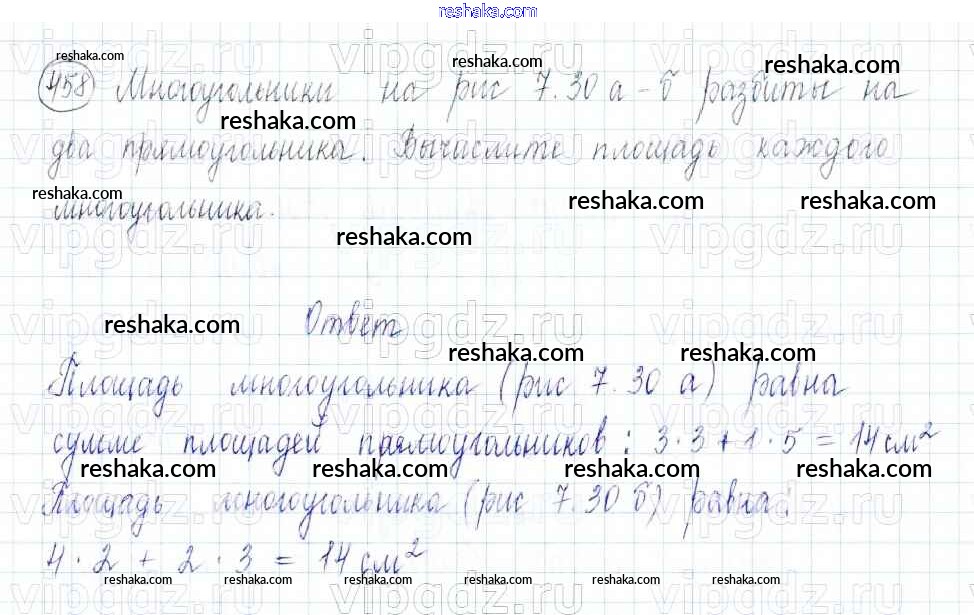 reshaka.com
reshaka.com
458 Многоугольники на рис 7.30 а-б разбиты на
reshaka.com reshaka.com
reshaka.com
два прямоугольника. Вычислите площадь каждого
reshaka.com reshaka.com reshaka.com
многоугольника.
reshaka.com
vipgdz.ru vipgdz.ru vipgdz.ru
Ответ
reshaka.com
reshaka.com reshaka.com
Площадь многоугольника (рис 7.30 а) равна
сумме площадей прямоугольников: 3·3+1·5=14см²
reshaka.com reshaka.com reshaka.com reshaka.com
Площадь многоугольника (рис 7.30 б) равна:
4·2+2·3=14см²
reshaka.com reshaka.com reshaka.com reshaka.com reshaka.com reshaka.com